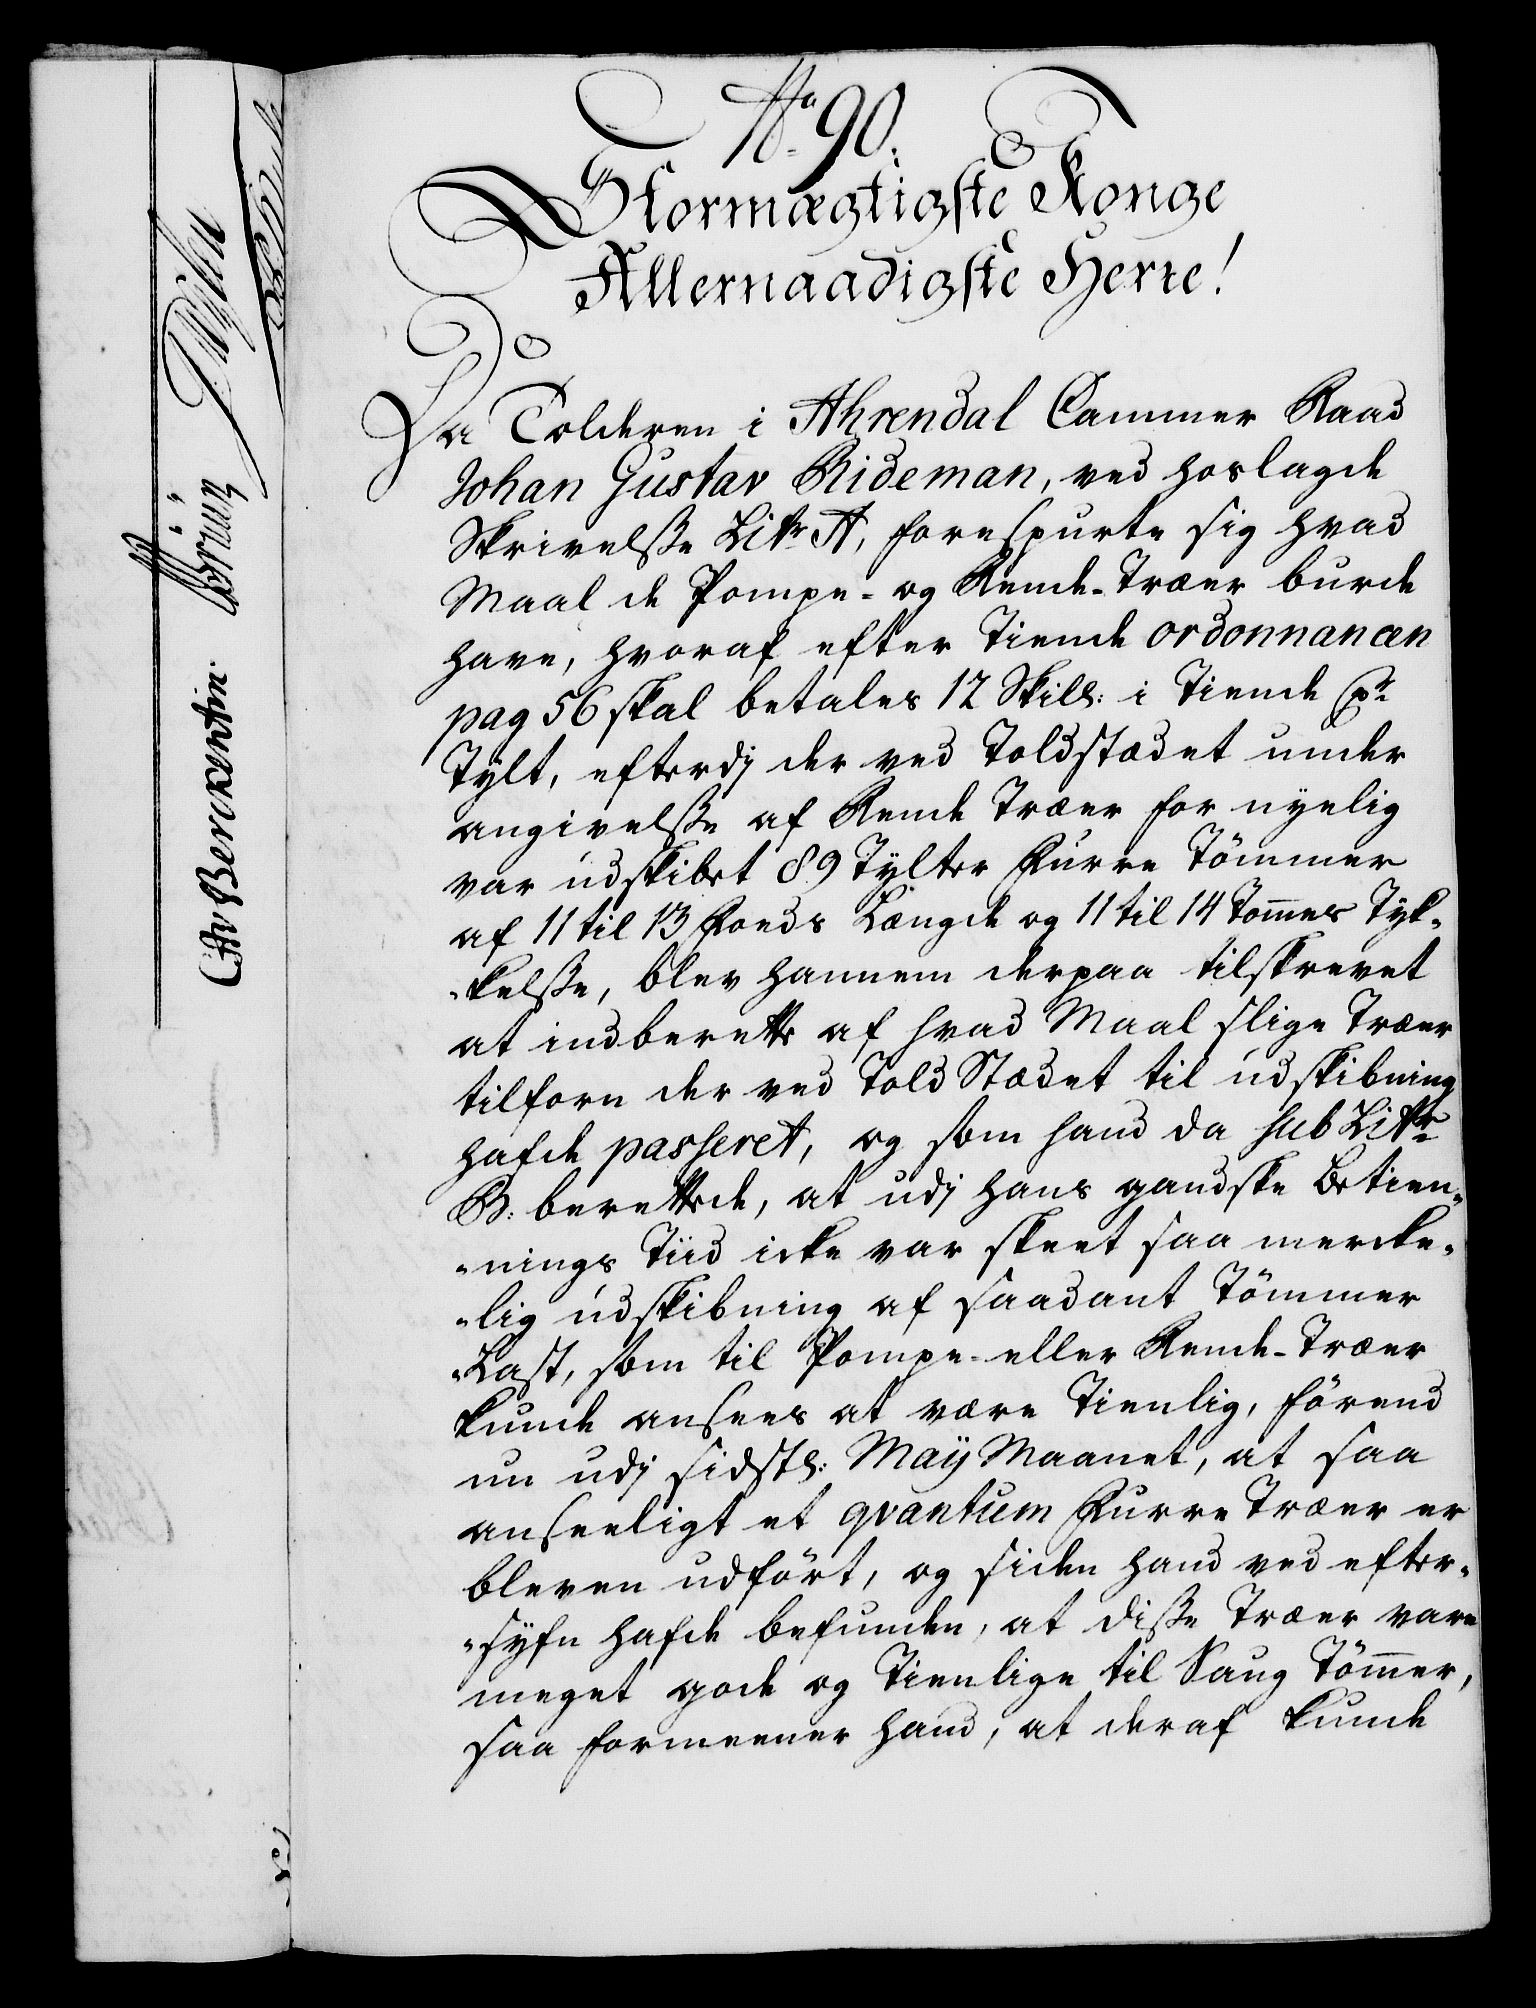 No. 90.
Stormægtigste Konge
Allernaadigste Herre!
Da Tolderen i Ahrendal Cammer Raad
Johan Gustav Rideman, ved hoslagde
Skrivelße Litr. A, forespurte sig hvad
Maal de Pompe- og Rende-Træer burde
have, hvoraf efter Tiende ordonnancen
pag 56 skal betales 12 Skill: i Tiende pr.
Tylt, efterdj der ved Toldstædet under
angivelße af Rende Træer for nyelig
var udskibet 89 Tylter Furre Tömmer
af 11 til 13 Foeds Længde og 11 til 14 Tom̄es Tyk-
-kelße, blev hannem derpaa tilskrevet
at indberette af hvad Maal slige Træer
tilforn der ved Told Stædet til udskibning
hafde passeret, og som hand da sub Litr.
B: berettede, at udj hans gandske Betien-
-nings Tiid icke var skeet saa mercke-
-lig udskibning af saadant Tömmer
-Last, som til Pompe- eller Rende-Træer
kunde ansees at være Tienlig, förend
nu udj sidstl: Maij Maanet, at saa
anseeligt et qvantum Furre Træer er
bleven udfört, og siden hand ved efter-
-syfn hafde befunden, at diße Træer vare
meget gode og Tienlige til Saug Töm̄er,
saa formeener hand, at deraf kunde
CAvBerckentin